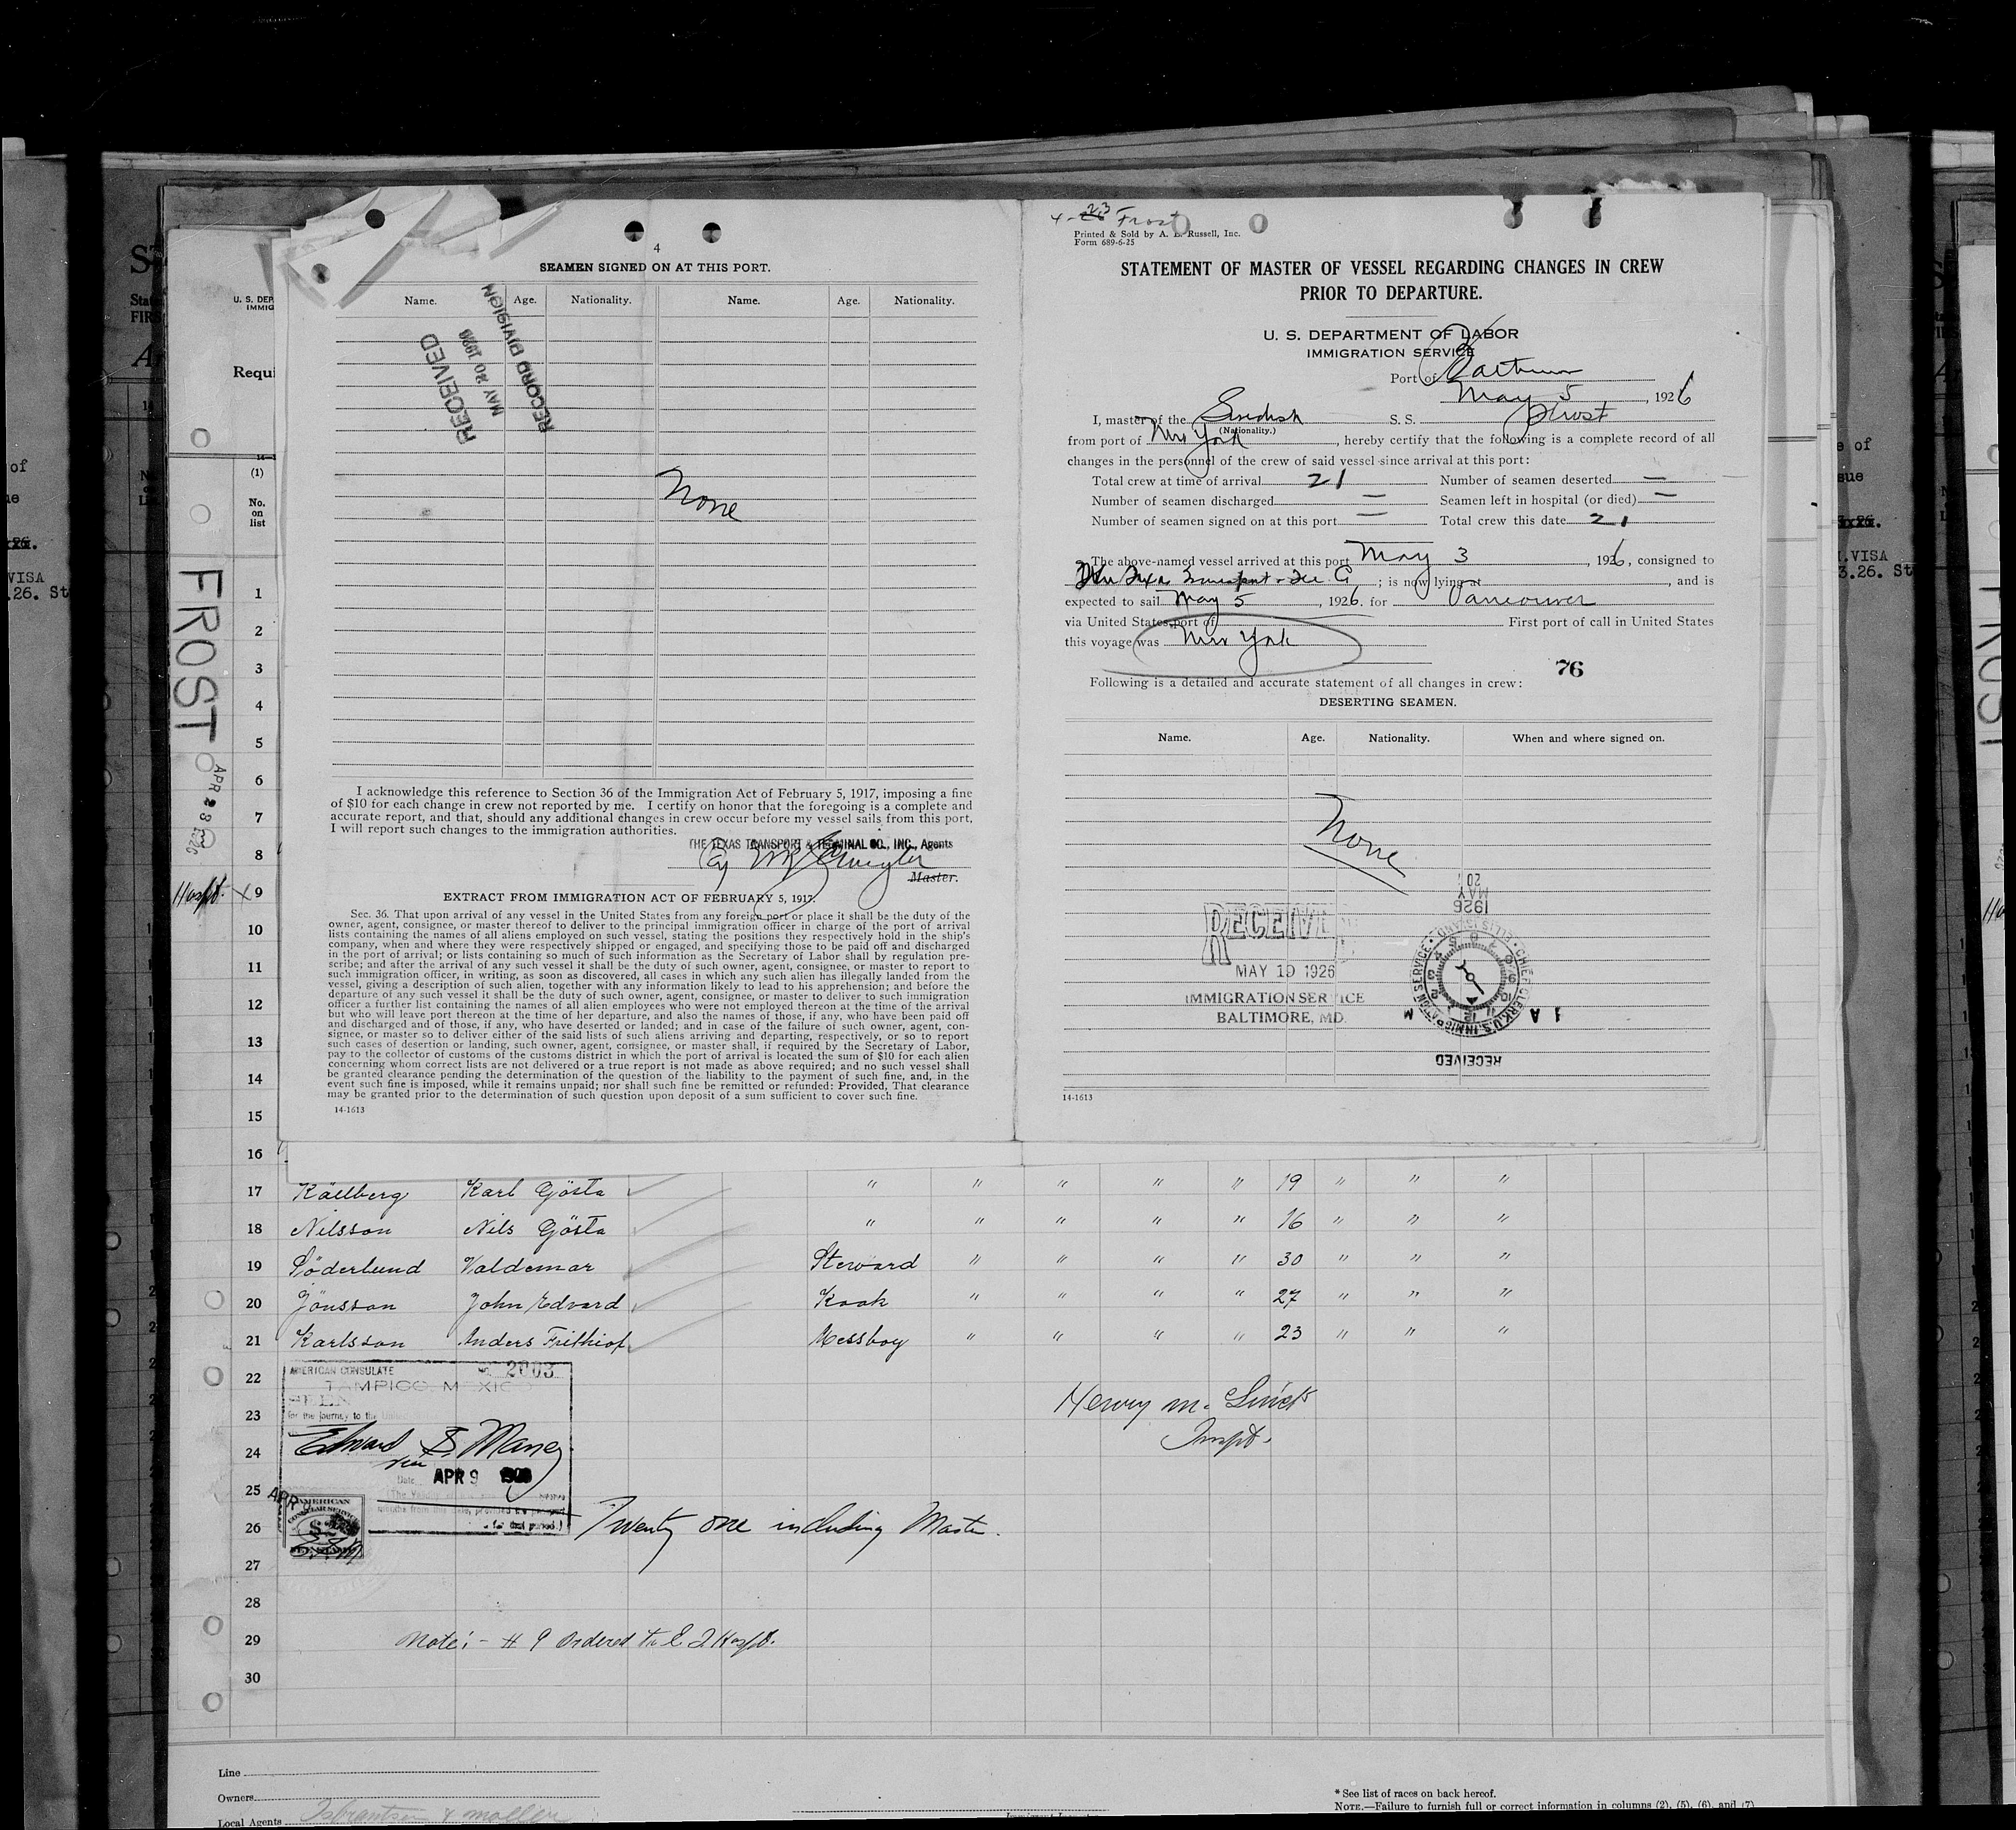 4
SEAMEN SIGNED ON AT THIS PORT.
Name. Age. Nationality. Name. Age. Nationality.
RECEIVED
MAY 20 1926
RECORD DIVISION
None
I acknowledge this reference to Section 36 of the Immigration Act of February 5, 1917, imposing a fine
of $10 for each change in crew not reported by me. I certify on honor that the foregoing is a complete and
accurate report, and that, should any additional changes in crew occur before my vessel sails from this port,
I will report such changes to the immigration authorities.
THE TEXAS TRANSPORT & TERMINAL CO., INC., Agents
By
Master.
EXTRACT FROM IMMIGRATION ACT OF FEBRUARY 5, 1917.
Sec. 36. That upon arrival of any vessel in the United States from any foreign port or place it shall be the duty of the
owner, agent, consignee, or master thereof to deliver to the principal immigration officer in charge of the port of arrival
lists containing the names of all aliens employed on such vessel, stating the positions they respectively hold in the ship's
company, when and where they were respectively shipped or engaged, and specifying those to be paid off and discharged
in the port of arrival; or lists containing so much of such information as the Secretary of Labor shall by regulation pre-
scribe; and after the arrival of any such vessel it shall be the duty of such owner, agent, consignee, or master to report to
such immigration officer, in writing, as soon as discovered, all cases in which any such alien has illegally landed from the
vessel, giving a description of such alien, together with any information likely to lead to his apprehension; and before the
departure of any such vessel it shall be the duty of such owner, agent, consignee, or master to deliver to such immigration
officer a further list containing the names of all alien employees who were not employed thereon at the time of the arrival
but who will leave port thereon at the time of her departure, and also the names of those, if any, who have been paid off
and discharged and of those, if any, who have deserted or landed; and in case of the failure of such owner, agent, con-
signee, or master so to deliver either of the said lists of such aliens arriving and departing, respectively, or so to report
such cases of desertion or landing, such owner, agent, consignee, or master shall, if required by the Secretary of Labor,
pay to the collector of customs of the customs district in which the port of arrival is located the sum of $10 for each alien
concerning whom correct lists are not delivered or a true report is not made as above required; and no such vessel shall
be granted clearance pending the determination of the question of the liability to the payment of such fine, and, in the
event such fine is imposed, while it remains unpaid; nor shall such fine be remitted or refunded: Provided, That clearance
may be granted prior to the determination of such question upon deposit of a sum sufficient to cover such fine.
14-1613
4-23 Frost
Printed & Sold by A. E. Russell, Inc.
Form 689-6-25
STATEMENT OF MASTER OF VESSEL REGARDING CHANGES IN CREW
PRIOR TO DEPARTURE.
U. S. DEPARTMENT OF LABOR
IMMIGRATION SERVICE
Port of
May 5, 1926
I, master of the Swedish S. S. Frost
(Nationality.)
from port of New York, hereby certify that the following is a complete record of all
changes in the personnel of the crew of said vessel since arrival at this port:
Total crew at time of arrival 21 Number of seamen deserted —
Number of seamen discharged — Seamen left in hospital (or died) —
Number of seamen signed on at this port — Total crew this date 21
The above-named vessel arrived at this port May 3, 1926, consigned to
; is now lying at , and is
expected to sail May 5, 1926, for Vancouver
via United States port of First port of call in United States
this voyage was New York
76
Following is a detailed and accurate statement of all changes in crew:
DESERTING SEAMEN.
Name. Age. Nationality. When and where signed on.
None
RECEIVE
MAY 10 1926
IMMIGRATION SERVICE
BALTIMORE, MD.
1926
MAY
20
CHIEF CLERK, U.S. IMMIGRATION SERVICE ELLIS ISLAND
RECEIVED
14-1613
U. S. DEP
IMMIG
Requi
(1)
No.
on
list
FROST
APR 23 1926
1
2
3
4
5
6
7
8
Hospt. X 9
10
11
12
13
14
15
16
17 Källberg Karl Gösta " " " " " 19 " " "
18 Nilsson Nils Gösta " " " " " 16 " " "
19 Söderlund Valdemar Steward " " " " 30 " " "
20 Jönsson John Edvard Kook " " " " 27 " " "
21 Karlsson Anders Frithiof Messboy " " " " 23 " " "
22
23
24
25
26
27
28
29
30
AMERICAN CONSULATE No. 2003
TAMPICO, MEXICO
for the journey to the United
Edward S. Maney
Date APR 9
AMERICAN
CONSULAR SERVICE
FEE STAMP
Henry M.
Inspt.
Twenty one including Master.
Note: - # 9 ordered to E I Hospt.
Line
Owners
Local Agents Isbrantsen & Moller
* See list of races on back hereof.
NOTE.—Failure to furnish full or correct information in columns (2), (5), (6), and (7)